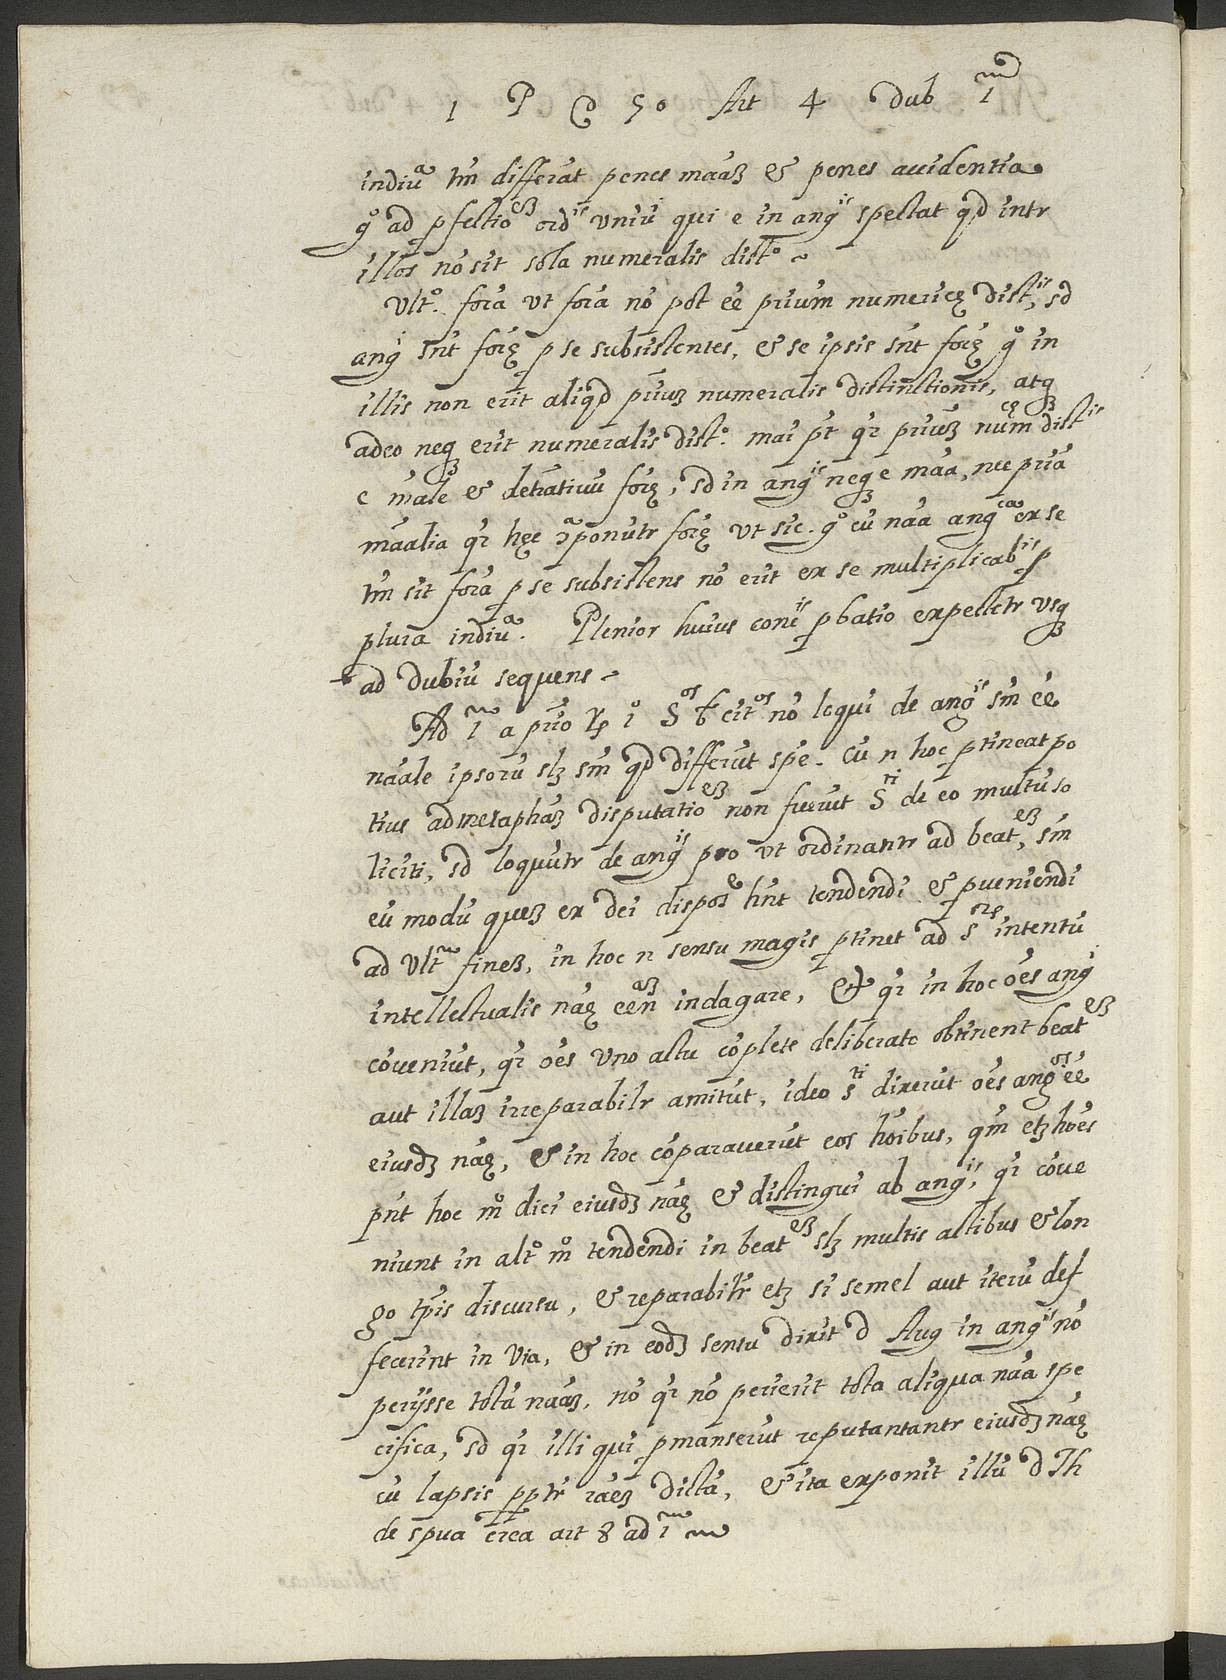 1 P Q 50 Art 4 dub 1m
indiua tm differāt penes māaȝ & penes accidentia
go ad pfectioeȝ ordis vniui qui e in angis spectat qd intr
illos nō sit sōla numeralis disto ~
Ulto. forā vt forā nō pōt ēe priūm numericę distis, sd
angi sūnt forę p se subsistentes, & se ipsis sūnt forę go in
illis non erit aliqd priūȝ numeralis distinctionis, atqȝ
adeo neqȝ erit numeralis disto. mai pt qr priūȝ numcę distis
e māle & detratiuū forę, sd in angis neqȝ e māa, nec priā
māalia qr hęc ꝓponūtr forę vt sic. go cū nāa angca ex se
tm sit forā p se subsistens nō erit ex se multiplicabis p
plura indiua. Plenior huius conis pbatio expectetr vsqȝ
ad dubiū sequens ~
Ad 1m a priō Rp 1o Sos citos nō loqui de angis sm ēe
nāale ipsorū slȝ sm qd differūt spe. Cū n hoc ptineat po
tius ad metaphāȝ disputatioeȝ non fuerūt Sti de eo multū so
liciti, sd loquūtr de angis pro vt ordinantr ad beateȝ, sm
eū modū queȝ ex dei dispoe hnt tendendi & pueniendi
ad vltm fineȝ, in hoc n sensu magis ptinet ad s intentū
intellectualis nāę ēenaȝ indagare, & qr in hoc ōes angi
cōueniūt, qr ōes vno actu cōplete deliberato obtinent beateȝ
aut illaȝ irreparabilr amitūt, ideo sti dixerūt ōes angos ēe
eiusdȝ nāę, & in hoc cōparauerūt eos hōibus, qm etȝ hōes
pnt hoc mo dici eiusdȝ nāę & distingui ab angis, qr cōue
niunt in alto mo tendendi in beateȝ slȝ multis actibus & lon
go tpis discursu, & reparabilr etȝ si semel aut iterū def
fecerint in via, & in eodȝ sensu dixit d Aug in angis nō
perijsse totā nāaȝ, nō qr nō perierit tota aliqua nāa spe
cifica, sd qr illi qui pmanserūt reputantantr eiusdȝ nāę
cū lapsis pptr rāeȝ dictā, & ita exponit illū d Th
de spua crea art 8 ad 1m